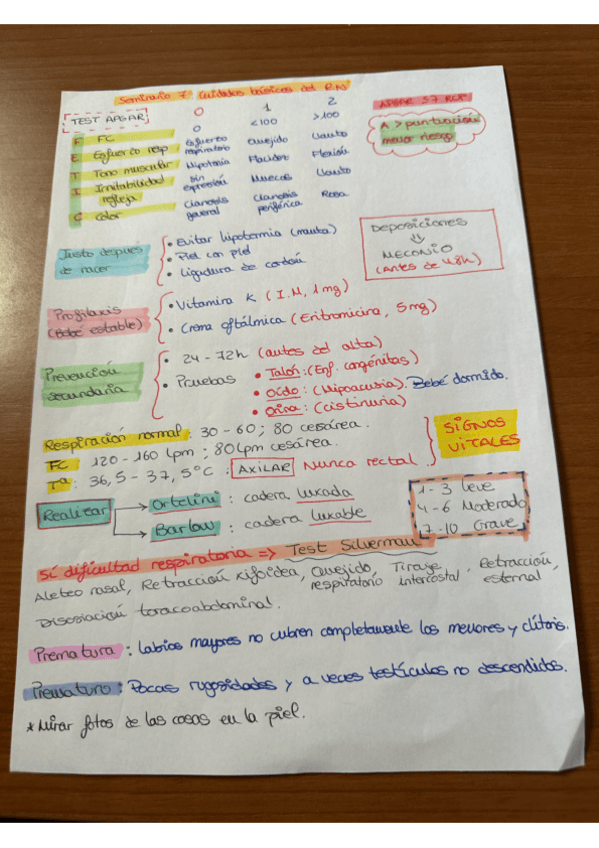 Seminario 7: Cuidados básicos del RN
TEST APGAR 0 1 2
F FC 0 <100 >100
E Esfuerzo resp Esfuerzo respiratorio Quejido Llanto
T Tono muscular Hipotonía Flacidez Flexión
I Irritabilidad refleja sin expresión Muecas Llanto
C color Cianosis general Cianosis periférica Rosa
APGAR ≤7 RCP
A > puntuación
menor riesgo
Justo después de nacer
• Evitar hipotermia (manta)
• Piel con piel
• Ligadura de cordón
Deposiciones
↓
MECONIO
(Antes de 48h)
Profilaxis
(Bebé estable)
• Vitamina K (I.M, 1mg)
• Crema oftálmica (Eritromicina, 5mg)
Prevención secundaria
• 24 - 72h (antes del alta)
• Pruebas
• Talón: (Enf. congénitas)
• Oído: (Hipoacusia). Bebé dormido.
• Orina: (cistinuria)
Respiración normal: 30 - 60; 80 cesárea.
FC 120 - 160 lpm; 80 lpm cesárea.
Tª: 36,5 - 37,5°C : AXILAR Nunca rectal
SIGNOS VITALES
Realizar
→ Ortolini: cadera luxada
→ Barlow: cadera luxable
1 - 3 leve
4 - 6 Moderado
7 - 10 Grave
Si dificultad respiratoria => Test Silverman
Aleteo nasal, Retracción xifoidea, Quejido respiratorio, Tiraje intercostal, Retracción esternal
Disociación toracoabdominal.
Prematura: Labios mayores no cubren completamente los menores y clítoris.
Prematuro: Pocas rugosidades y a veces testículos no descendidos.
* Mirar fotos de las cosas en la piel.